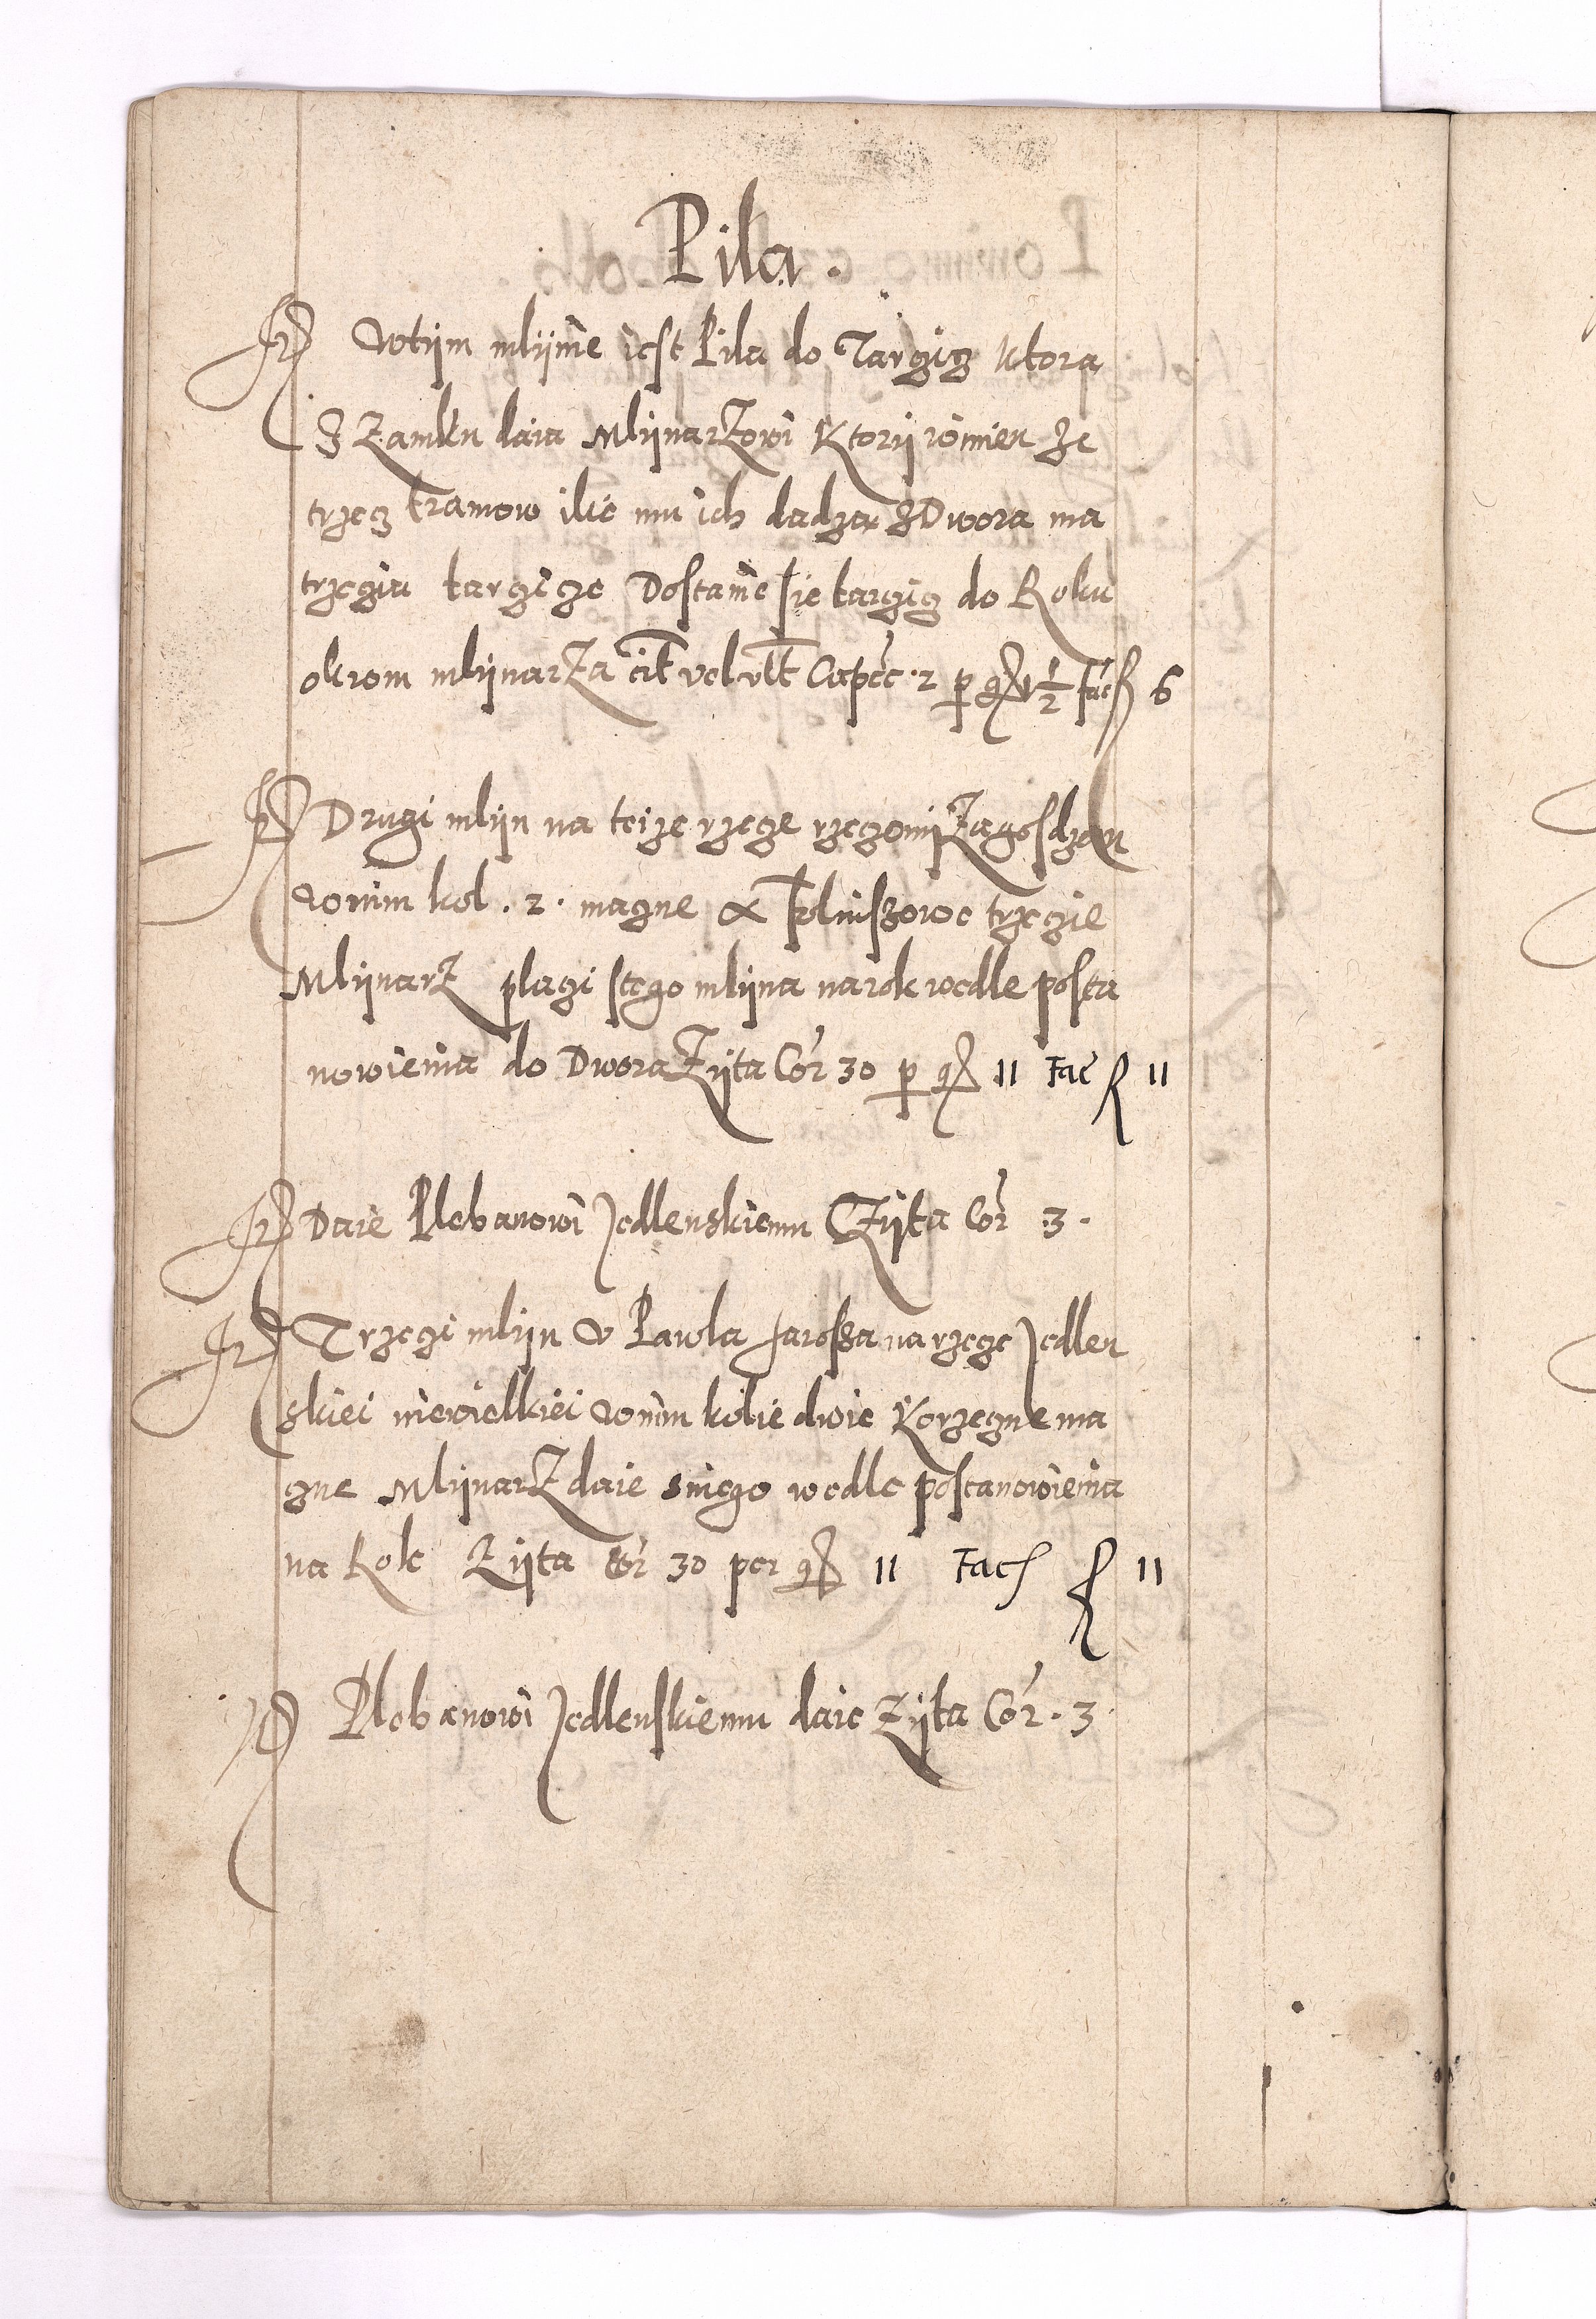 Pila.
It Wtijm mlijnie iest Pila do Targicz ktora
Z Zamku daia MlijnarZowi Ktorij rowmien ze
trzecz tramow ilie mu ich dadza zDwora ma
trzecia targicze Dostanie sie targicz do Roku
okrom mlijnarZa Capće 2 p 1/2 fać 6
It Drugi mlijn na teize rzecze rzeczonij Zagosdzon
wnim kol. 2. maczne trzecie
MlijnarZ placzi stego mlijna narok wedle posta
nowienia do Dwora Zijta Cor 30 p 11 Fać 11
It Daie Plebanowi Jedlenskiemu Zijta Cor 3.
It Trzeczi mlijn v Pawla Jarossa na rzecze Jedlen
skiei niewielkiei wnim kolie dwie Korzeczne ma
czne MlijnarZ daie sniego wedle postanowienia
na Rok Zijta Cor 30 per 11 Fać 11
It Plebanowi Jedlenskiemu daie Zijta Cor. 3